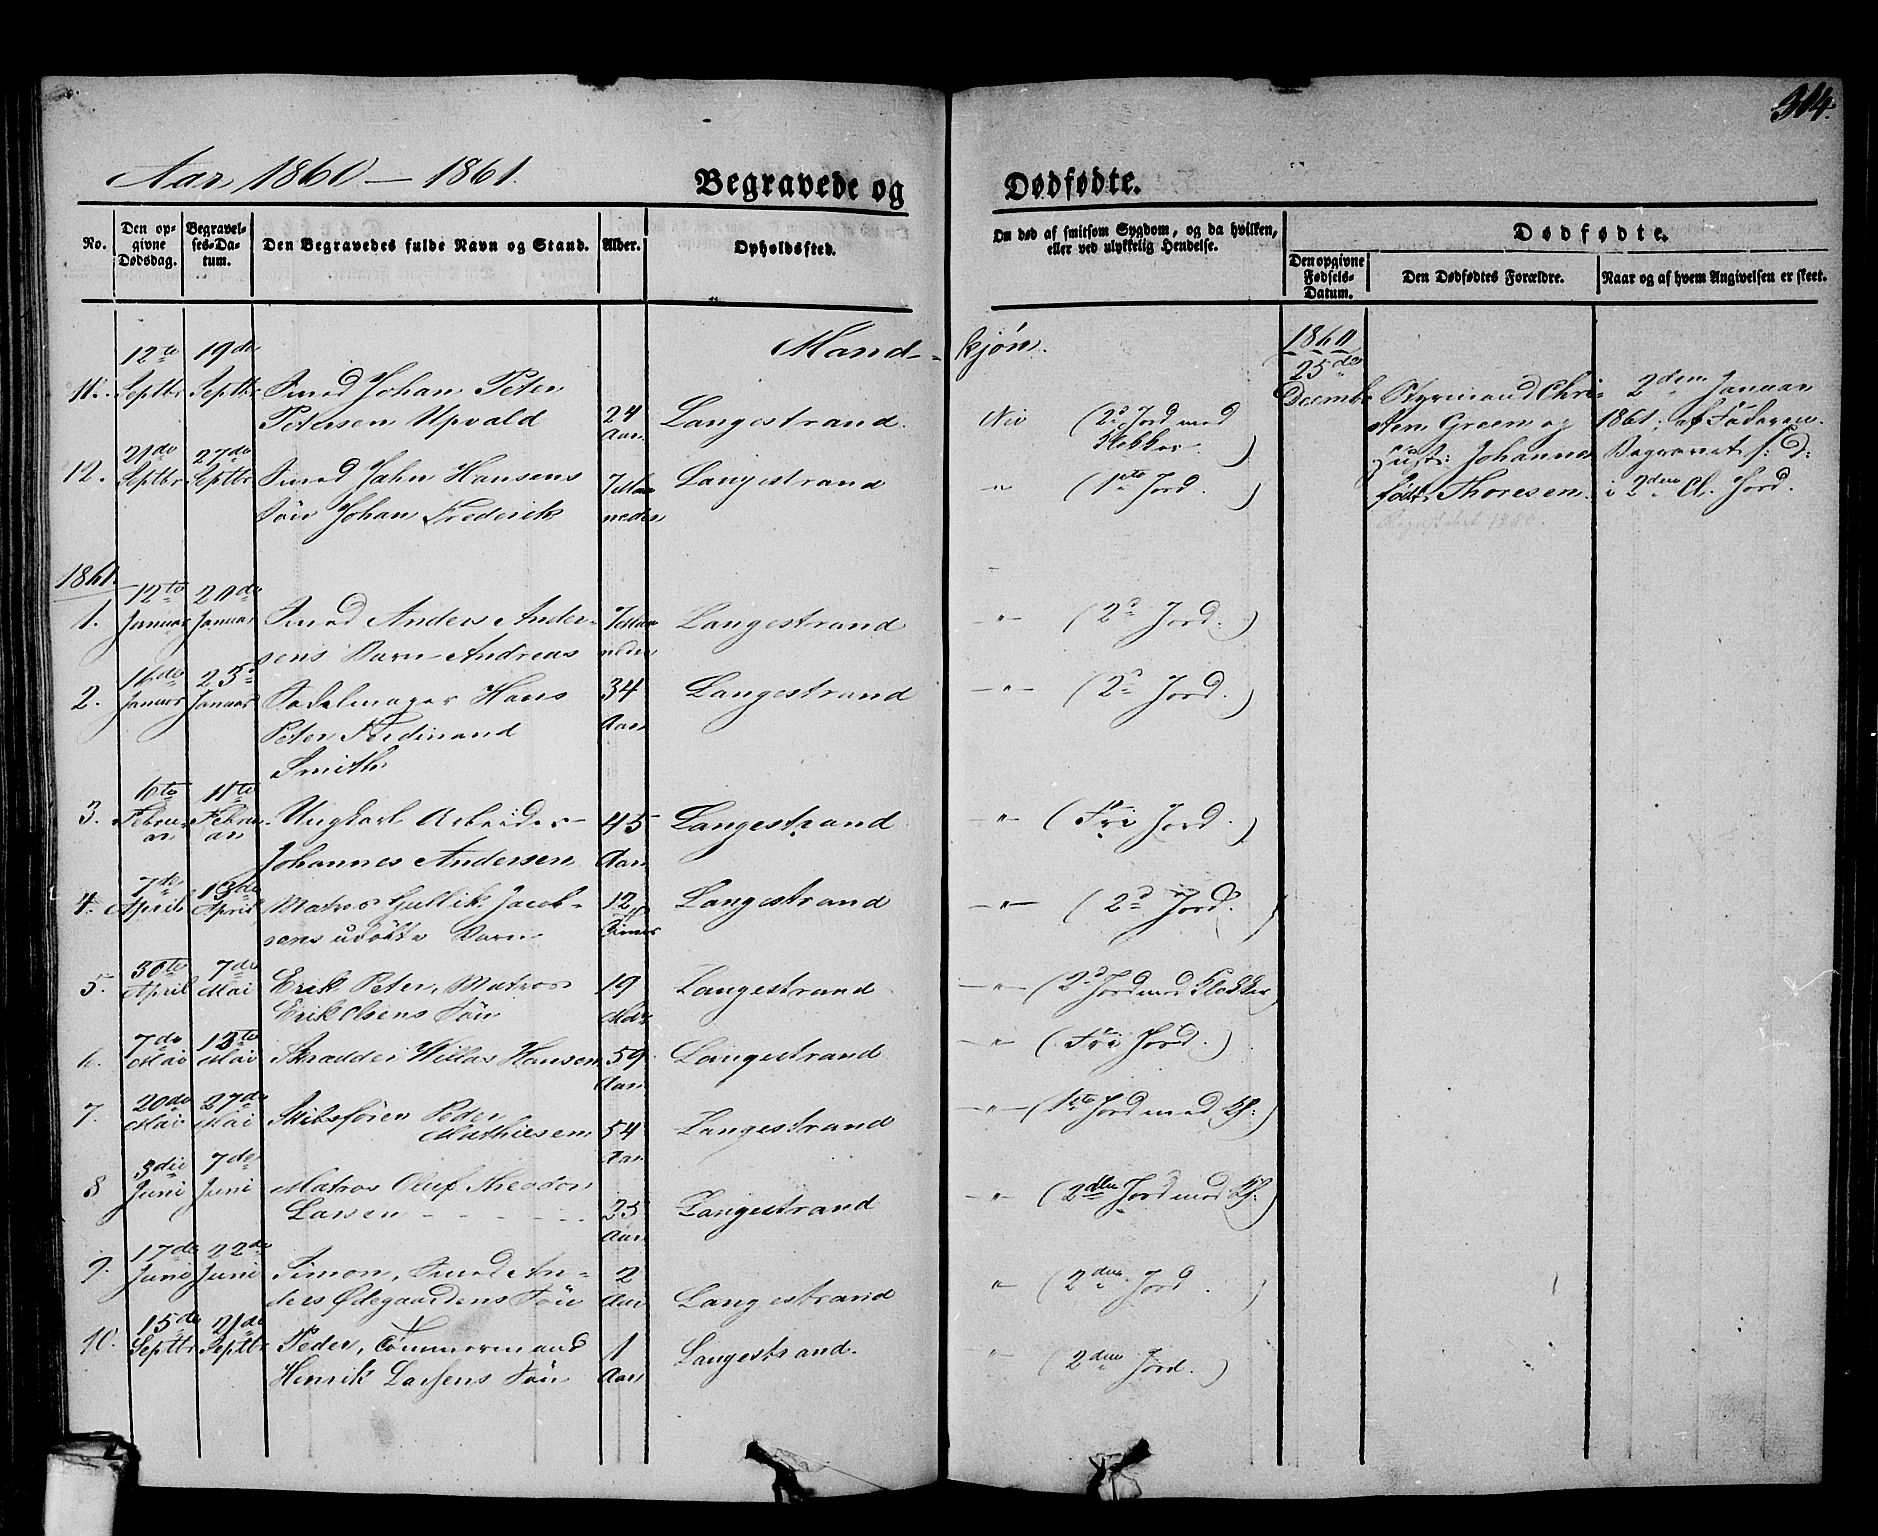 314.
Aar 1860 — 1861.
Begravede og
Dødfødte.
No.
Den opgivne Dødsdag.
Begravelses-Datum.
Den Begravedes fulde Navn og Stand.
Alder.
Opholdssted.
Om død af smitsom Sygdom, og da hvilken,
eller ved ulykkelig Hendelse.
Dødfødte.
Den opgivne Fødsels-Datum.
Den Dødfødtes Forældre.
Naar og af hvem Angivelsen er skeet.
Mand-
kjøn.
11. 12te Septbr 19de Septbr Smed Johan Peter
Petersen Upvald 24 Aar Langestrand. Nei (2d Jord med
Klokker.)
12. 21de Septbr 27de Septbr Smed Jahn Hansens 7 Maa Langestrand " (1ste Jord.)
Søn Johan Frederik neder
1861.
1. 12te Januar 20de Januar Smed Anders Ander- 7 Maa Langestrand " (2d Jord.)
sens Barn Andreas neder
2. 16de Januar 25d Januar Sadelmager Hans 34 Langestrand " (2d Jord.)
Peter Ferdinand Aar
Smith
3. 6te Februar 11te Februar Ungkarl Arbeider 45 Langestrand " (Fri Jord.)
Johannes Andersen Aar
4. 7de April 13de April Matros Gullik Jacob- 12 Langestrand " (2d Jord.)
sens udøbte Barn Timer
5. 30te April 7de Mai Erik Peter, Matros 19 Langestrand " (2d Jord med Klokker)
Erik Olsens Søn Mdr
6. 7de Mai 13te Mai Skrædder Willas Hansen 59 Aar Langestrand " (Fri Jord.)
7. 20de Mai 27de Mai Skibsfører Peder
Mathiesen 54 Aar Langestrand " (1ste Jord med Kl:)
8 3die Juni 7de Juni Matros Oluf Theodor
Larsen 25 Aar Langestrand " (2den Jord med Kl:)
9. 17de Juni 22de Juni Simon, Smed An- 2
ders Ødegaardens Søn Aar Langestrand " (2den Jord.)
10. 15de Septbr 21de Septbr Peder, Tømmermand 1 Langestrand. " (2den Jord.)
Henrik Larsens Søn Aar
1860
25de
Decembr
Styrmand Chri-
sten Green og
Hustr: Johanne
født Thoresen.
2den Januar
1861; af Faderen.
Begravet s: D:
i 2den Cl. Jord.